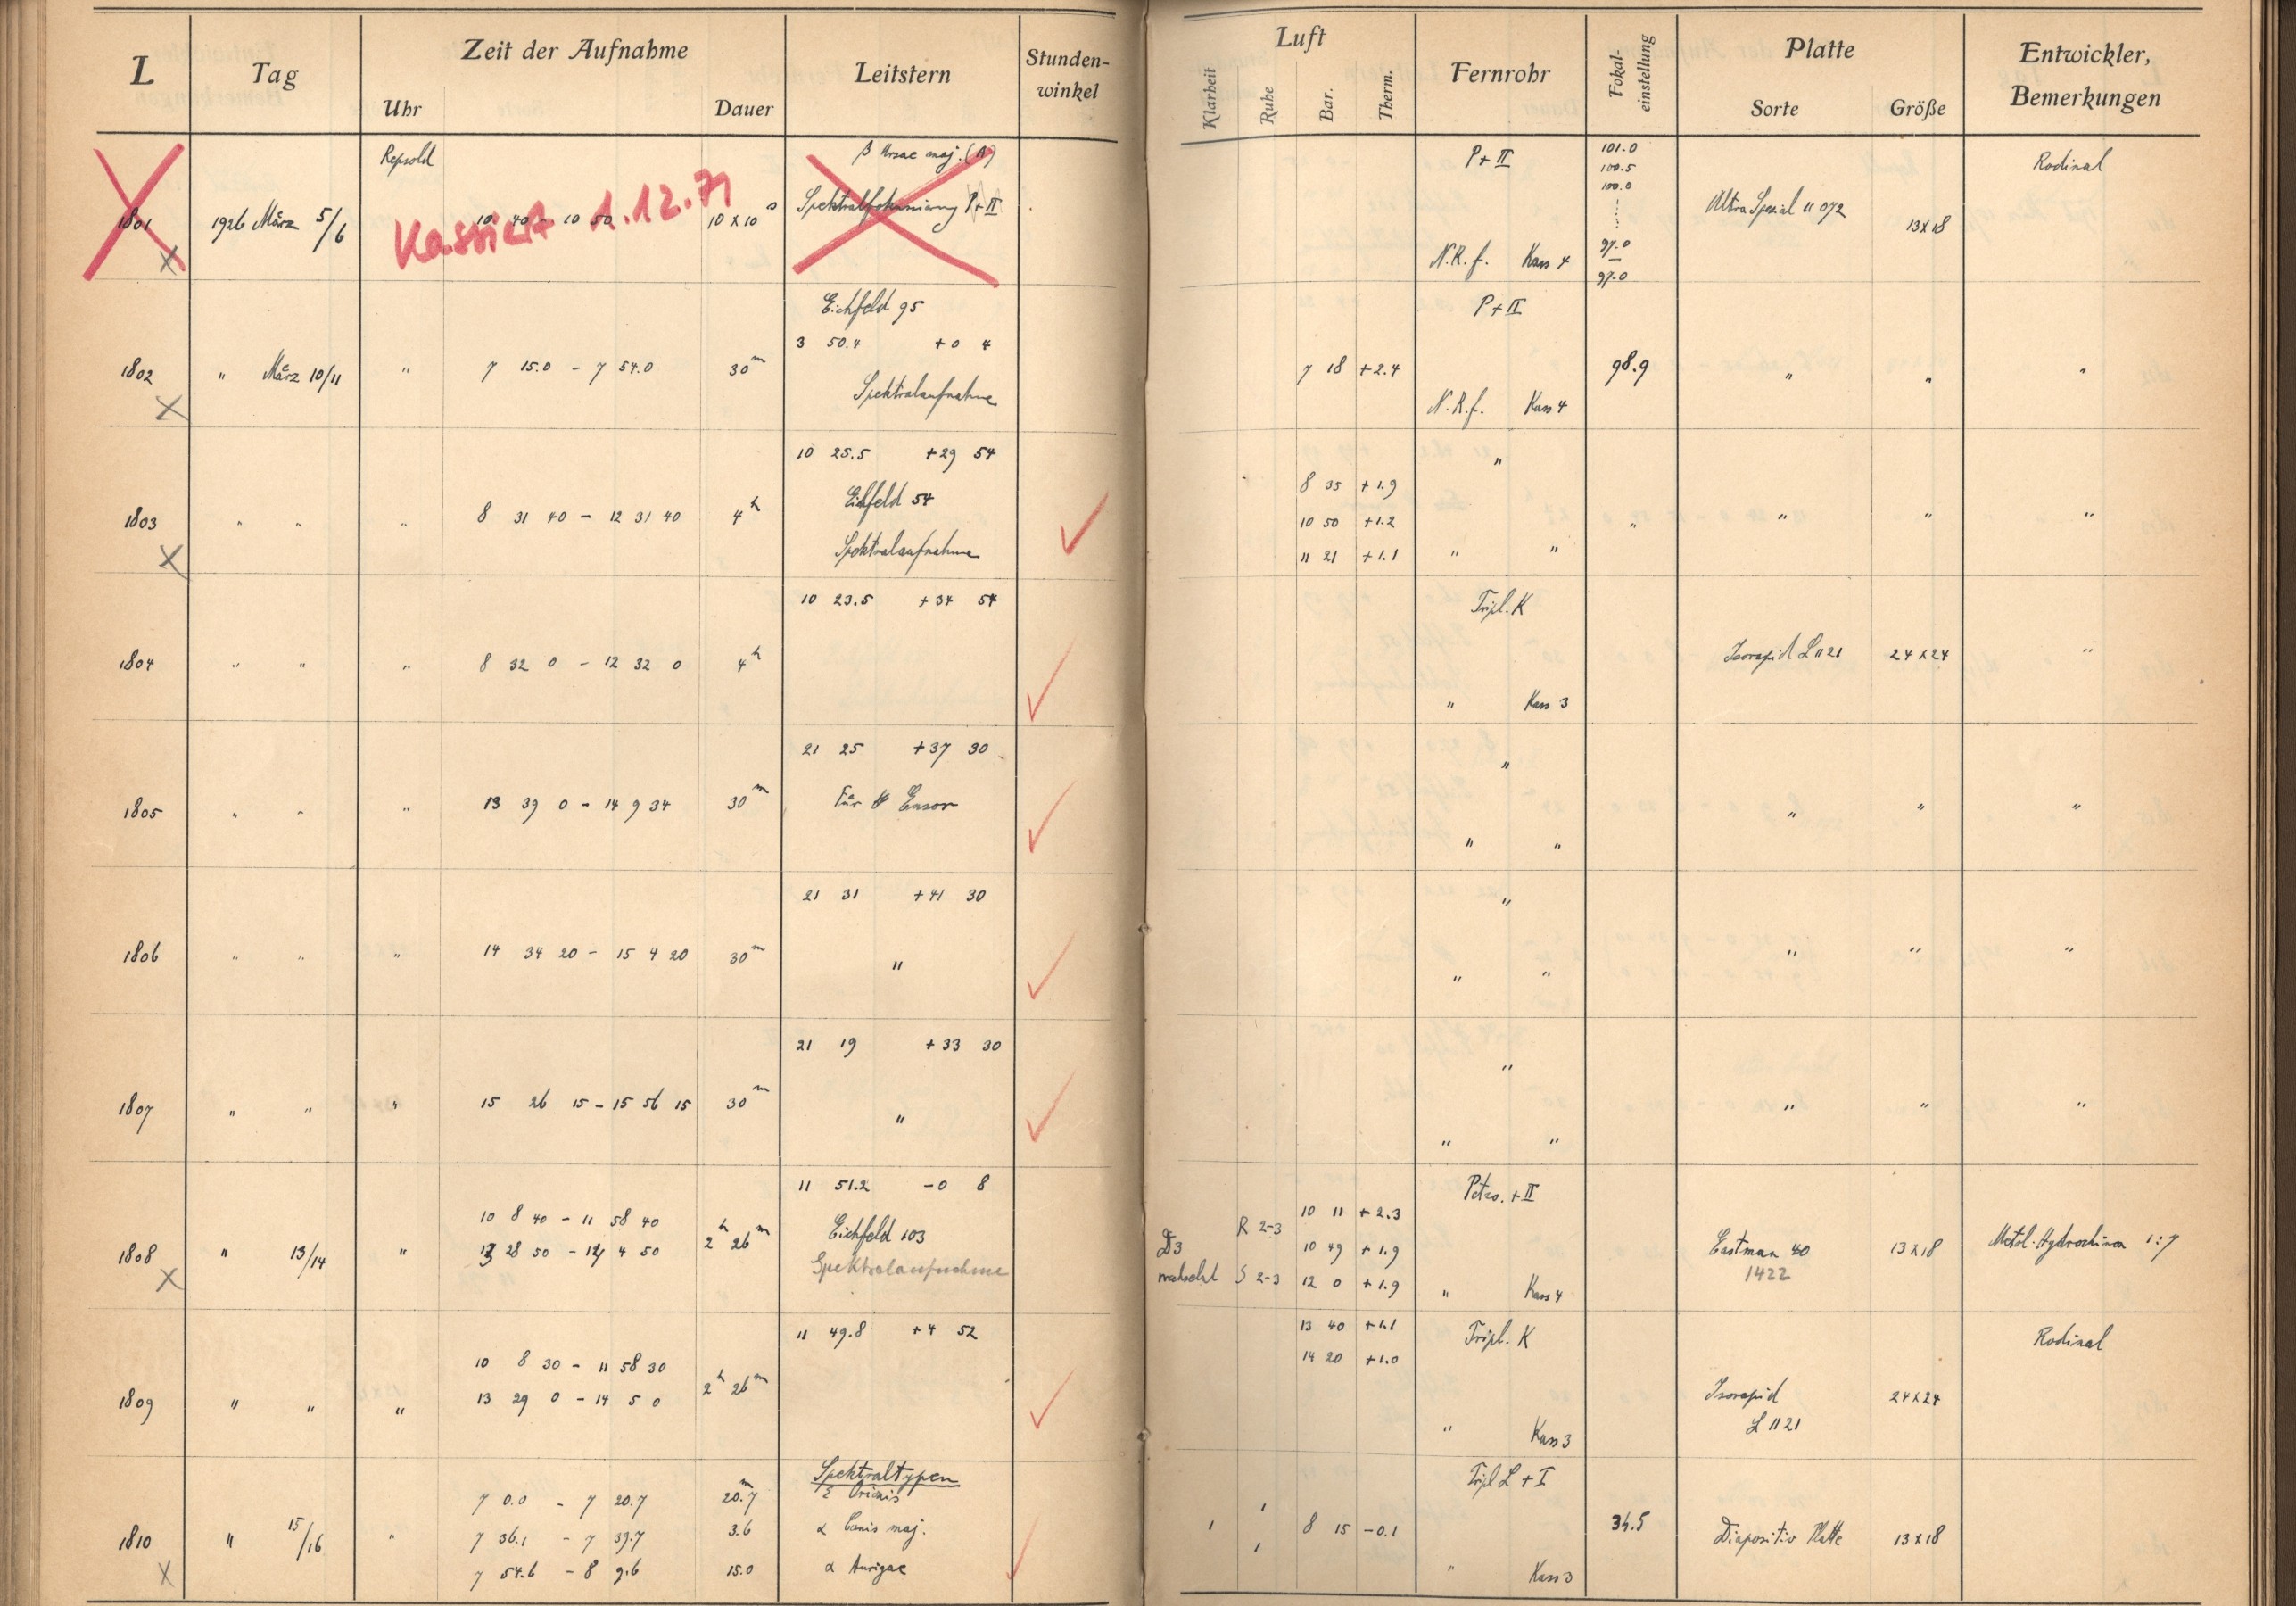 L Tag Zeit der Aufnahme Leitstern Stunden-winkel Luft Fernrohr Fokal-einstellung Platte Entwickler, Bemerkungen
Uhr Dauer Klarheit Ruhe Bar. Therm. Sorte Größe
Repsold β Ursae maj. (A) P + II 101.0 Rodinal
100.5
100.0
1801 1926 März 5/6 10 40 - 10 50 10 x 10 s Spektralfokussierung P + II Ultra Spezial 11 072 13 x 18
Kassiert 1.12.71
97.0
X N.R.f. Kass 4 97.0
Eichfeld 95 P + II
3 50.4 +0 4
1802 " März 10/11 " 7 15.0 - 7 54.0 30 m 7 18 +2.4 98.9 " " "
X Spektralaufnahme N.R.f. Kass 4
10 25.5 +29 54 "
Eichfeld 54 8 35 +1.9
1803 " " " 8 31 40 - 12 31 40 4 h 10 50 +1.2 " " " "
X Spektralaufnahme 11 21 +1.1 " "
10 23.5 +34 54 Tripl. K
1804 " " " 8 32 0 - 12 32 0 4 h Isorapid L 1121 24 x 24 "
" Kass 3
21 25 +37 30 "
1805 " " " 13 39 0 - 14 9 34 30 m Für Ensor " " "
" "
21 31 +41 30 "
1806 " " " 14 34 20 - 15 4 20 30 m " " " "
" "
21 19 +33 30 "
1807 " " " 15 26 15 - 15 56 15 30 m " " " "
" "
11 51.2 -0 8 Petz. + II
10 8 40 - 11 58 40 R 2-3 10 11 +2.3
1808 " 13/14 " 13 28 50 - 14 4 50 2 h 26 m Eichfeld 103 D3 10 49 +1.9 Eastman 40 13 x 18 Metol-Hydrochinon 1:7
X Spektralaufnahme wechselnd S 2-3 12 0 +1.9 " Kass 4 1422
11 49.8 +4 52 13 40 +1.1 Tripl. K Rodinal
10 8 30 - 11 58 30 14 20 +1.0
1809 " " " 13 29 0 - 14 5 0 2 h 26 m Isorapid 24 x 24
L 1121
" Kass 3
Spektraltypen Tripl L + I
7 0.0 - 7 20.7 20.7 m ε Orionis
1810 " 15/16 " 7 36.1 - 7 39.7 3.6 α Canis maj. 1 1 8 15 -0.1 34.5 Diapositiv Platte 13 x 18
X 7 54.6 - 8 9.6 15.0 α Aurigae 1 " Kass 3